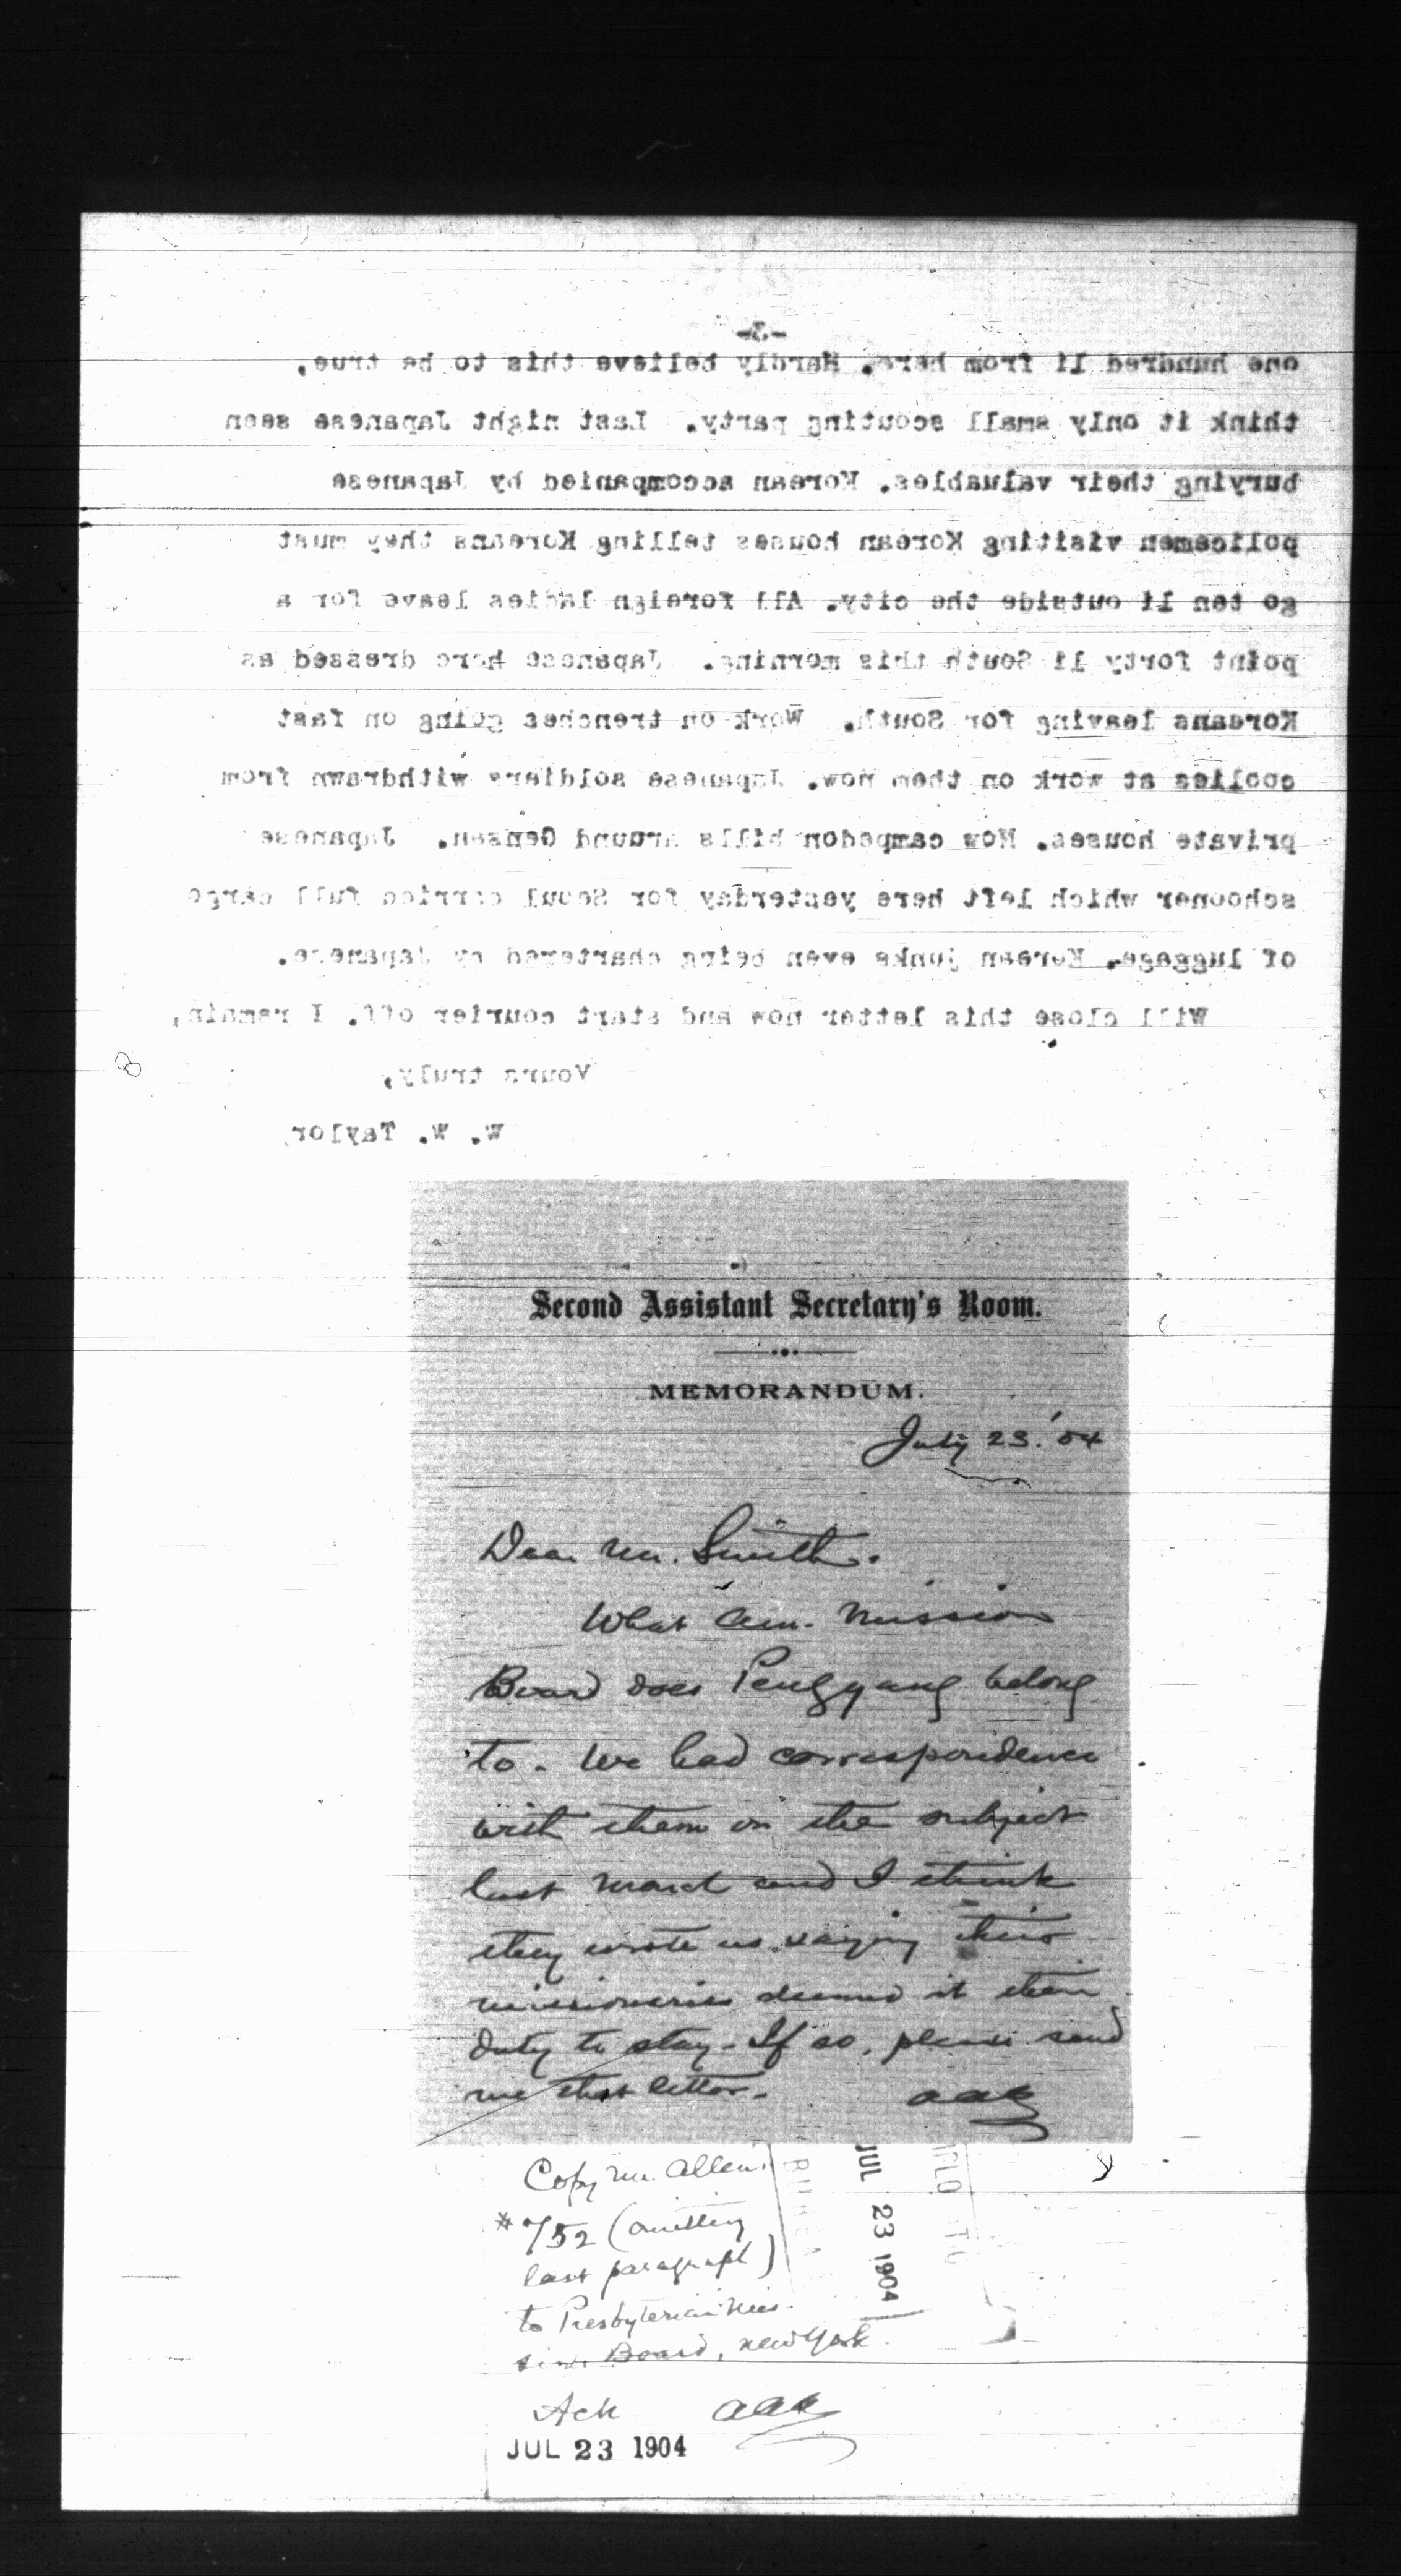 -3-
one hundred li from here. Hardly believe this to be true,
think it only small scouting party. Last night Japanese seen
burying their valuables. Korean accompanied by Japanese
policemen visiting Korean houses telling Koreans they must
go ten li outside the city. All foreign ladies leave for a
point forty li South this morning. Japanese here dressed as
Koreans leaving for South. Work on trenches going on fast
coolies at work on them now. Japanese soldiers withdrawn from
private houses. Now campedon hills around Gensan. Japanese
schooner which left here yesterday for Seoul carried full cargo
of luggage. Korean junks even being chartered by Japanese.
Will close this letter now and start courier off. I remain,
Yours truly,
W. W. Taylor
Second Assistant Secretary's Room.
MEMORANDUM.
July 23. '04
Dear Mr. Smith.
What Am. Mission
Board does Pengyang belong
to. We had correspondence
with them on the subject
last March and I think
they wrote us saying their
missionaries deemed it their
duty to stay - If so, please send
me that letter. aaa
Copy Mr. Allen's
#752 (omitting
last paragraph)
to Presbyterian Mis-
sion Board, New York.
Ack aaa
JUL 23 1904
JUL 23 1904